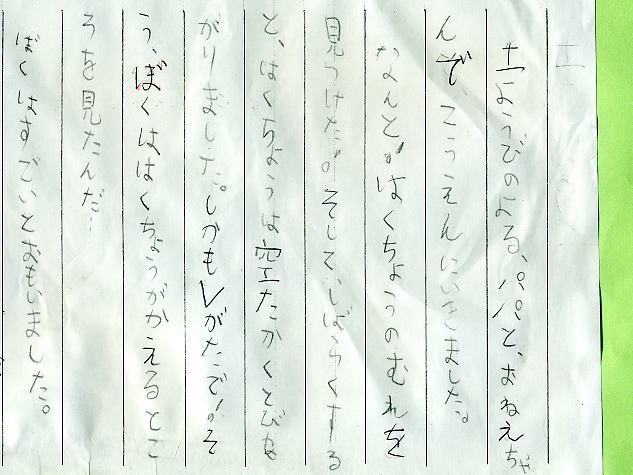 土ようびのよる、パパと、おねえちゃ
んで、こうえんにいきました。
なんとがはくちょうのむれを
見つけたがそしてしばらくする
と、はくちょうは空たかくとびあ
がりました。しかもVがたで!そ
う、ぼくははくちょうがかえるとこ
ろを見たんだ.
ぼくはすごいとおもいました。